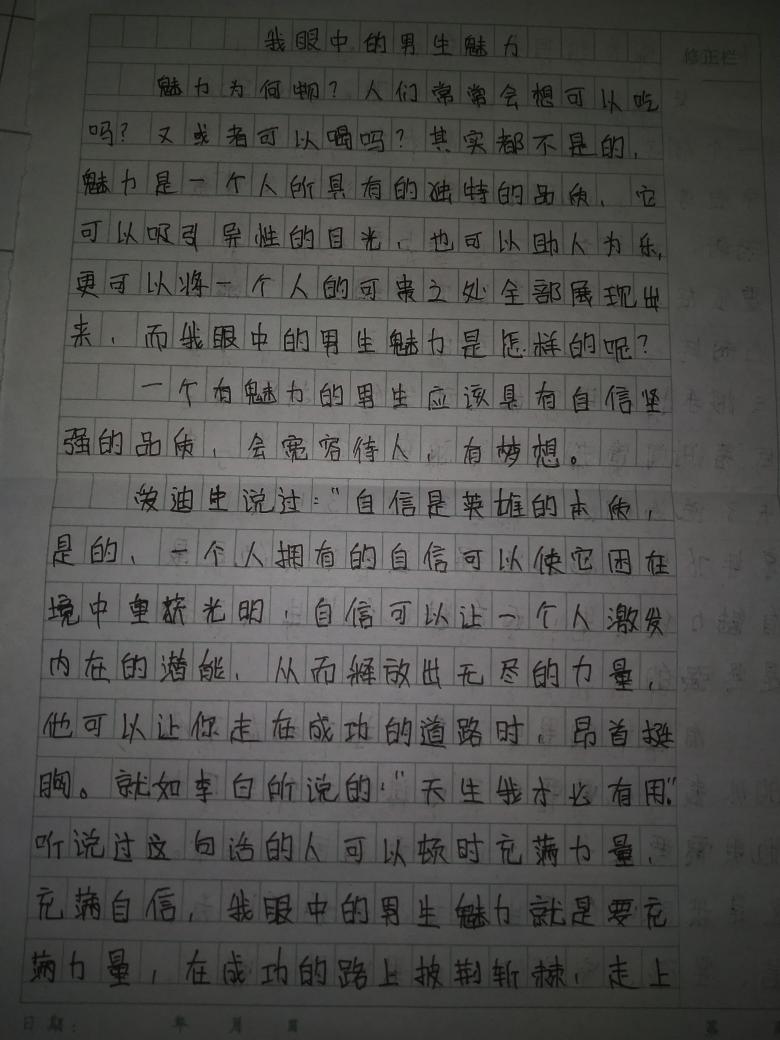 我眼中的男生魅力
修正栏
魅力为何物？人们常常会想可以吃
吗？又或者可以喝吗？其实都不是的，
魅力是一个人所具有的独特的品质，它
可以吸引异性的目光，也可以助人为乐，
更可以将一个人的可贵之处全部展现出
来，而我眼中的男生魅力是怎样的呢？
一个有魅力的男生应该具有自信坚
强的品质，会宽容待人，有梦想。
爱迪生说过："自信是英雄的本质，
是的，一个人拥有的自信可以使它困在
境中重获光明，自信可以让一个人激发
内在的潜能，从而释放出无尽的力量，
他可以让你走在成功的道路时，昂首挺
胸。就如李白所说的："天生我才必有用"
听说过这句话的人可以顿时充满力量，
充满自信，我眼中的男生魅力就是要充
满力量，在成功的路上披荆斩棘，走上
日期： 年 月 日